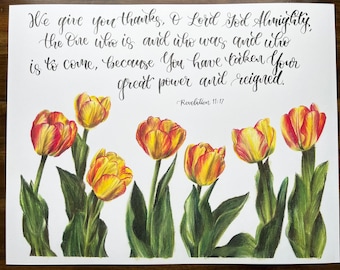 We give you thanks, O Lord God Almighty,
the One who is and who was and who
is to come, because You have taken Your
great power and reigned.
Revelation 11:17